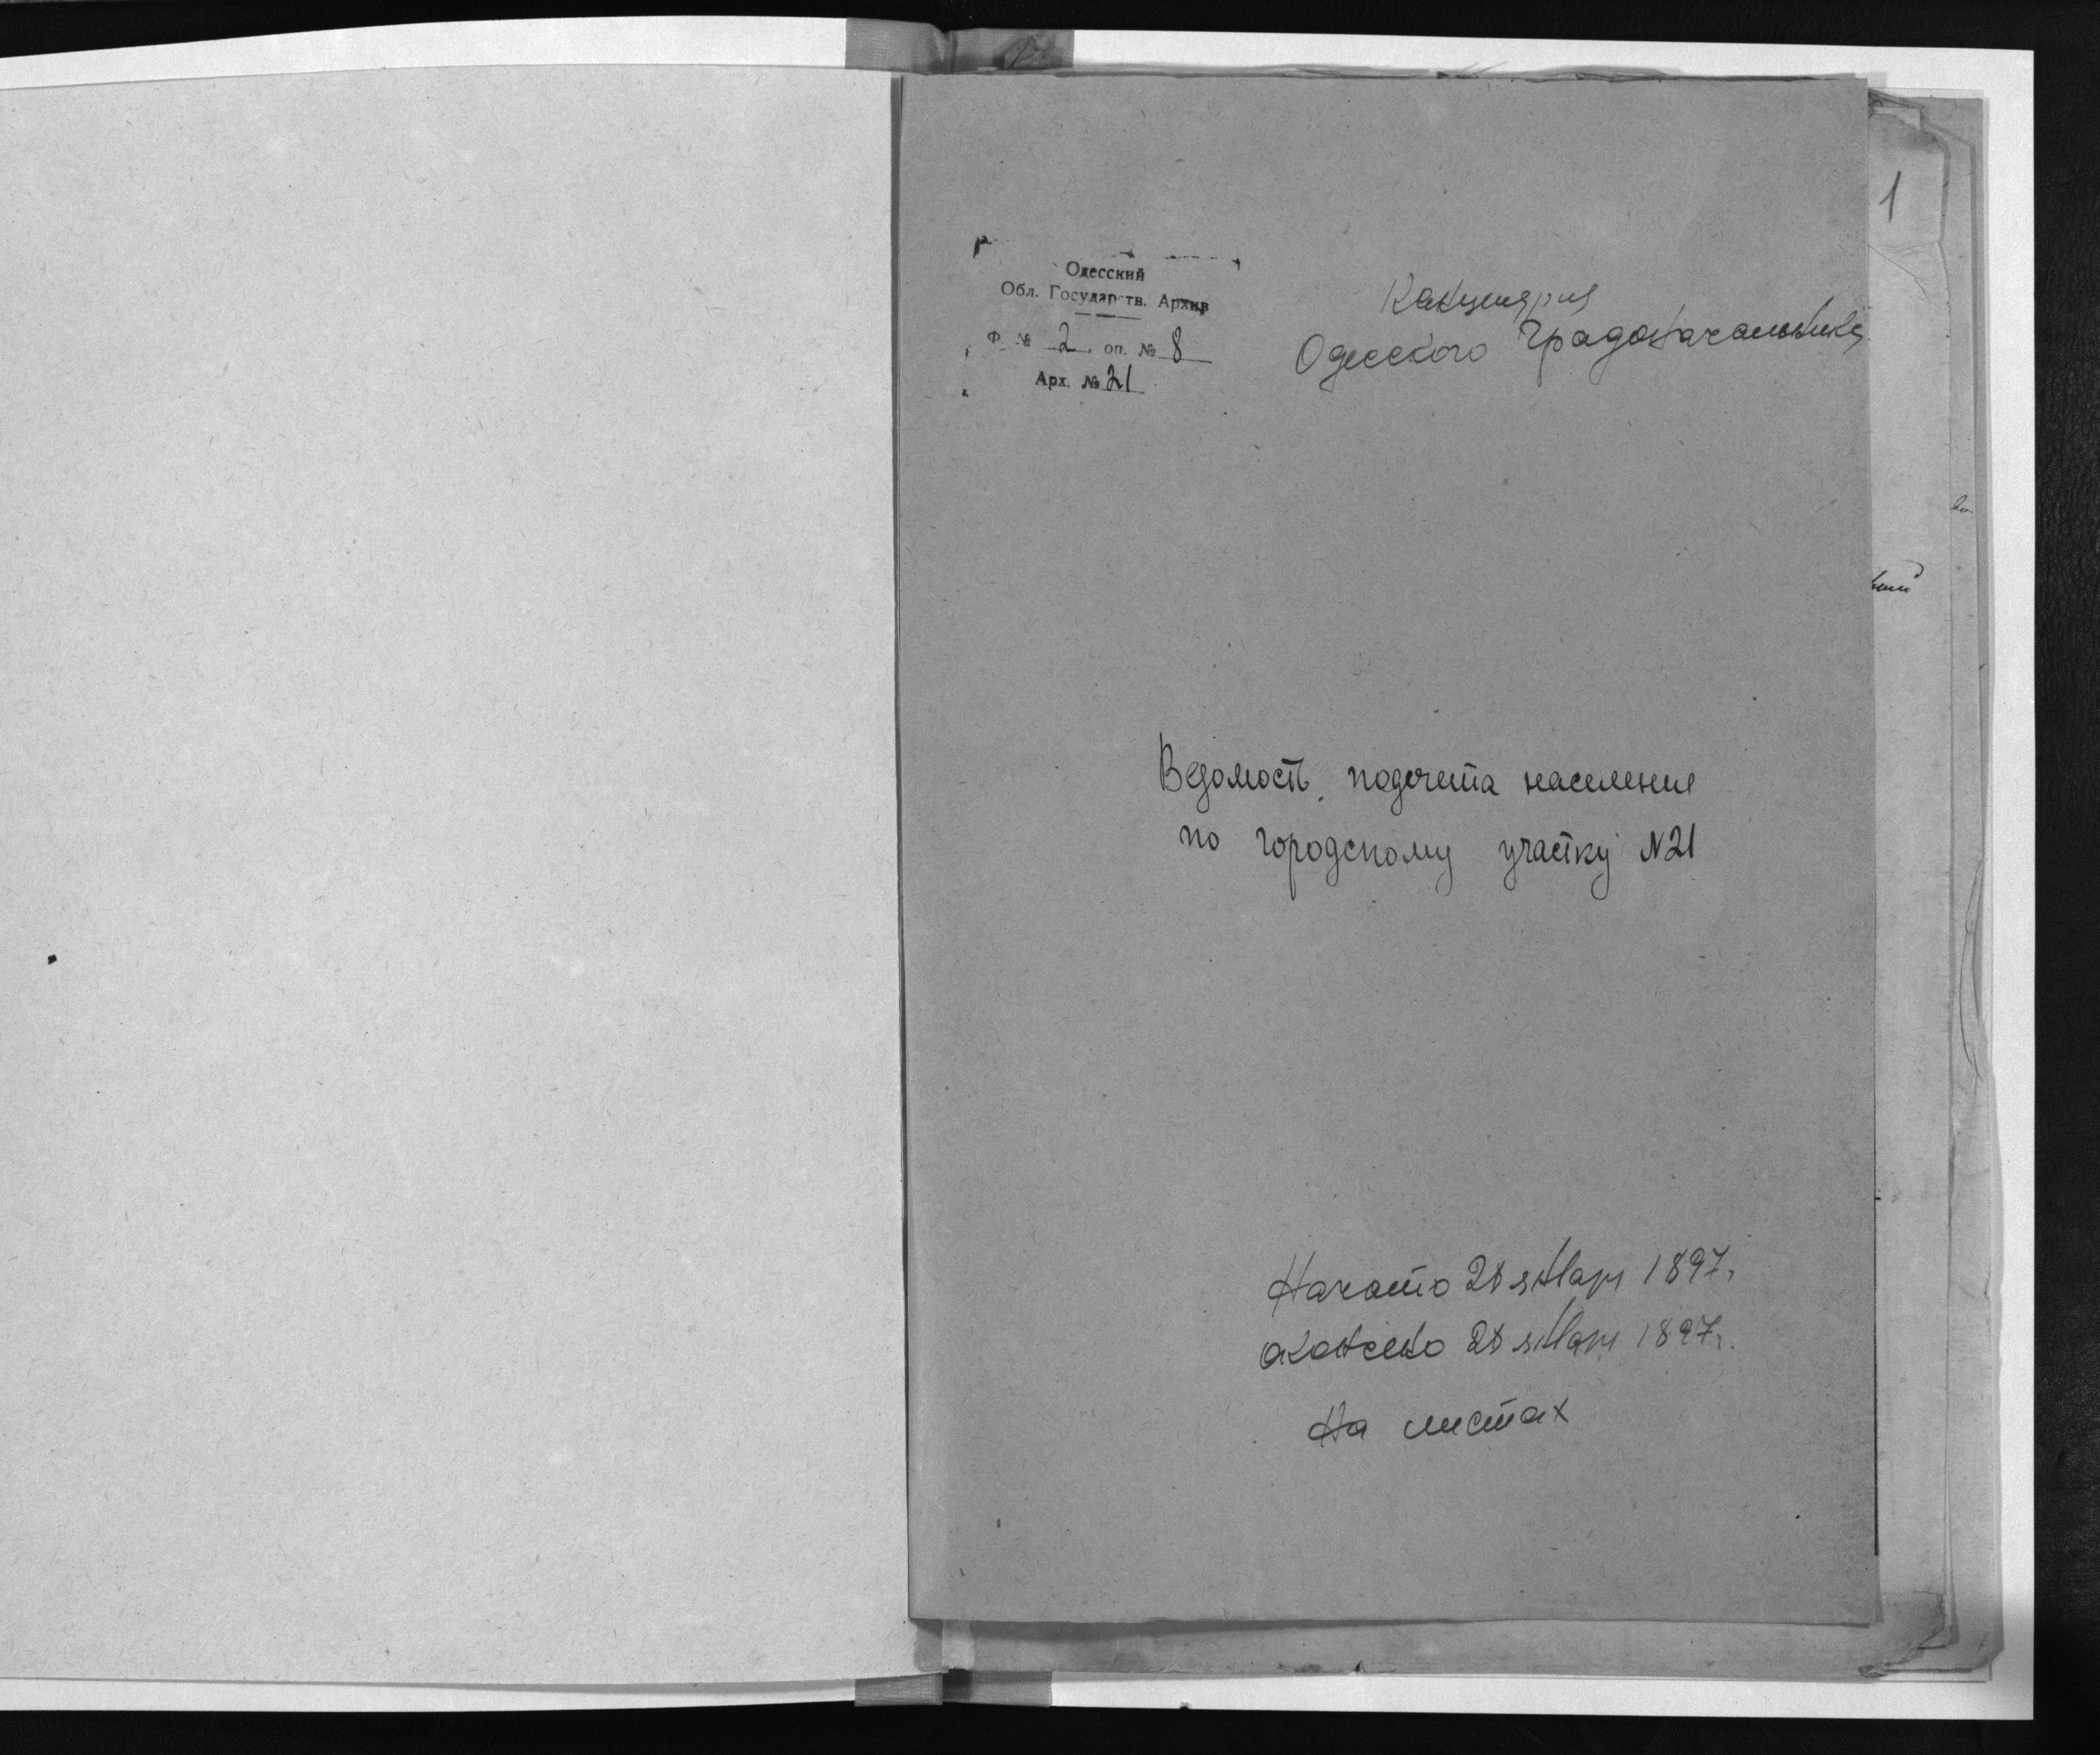 Одесский
Обл. Государств. Архив
Ф. № 2. оп. № 8
Арх. № 21
Канцелярия
Одесского Градоначальника
Ведомость подсчета населения
по городскому участку N21
Начато 28 января 1897г.
Окончено 28 января 1897г.
На листах
1